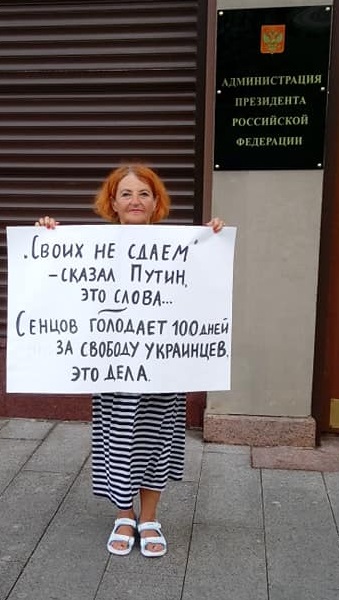 АДМИНИСТРАЦИЯ
ПРЕЗИДЕНТА
РОССИЙСКОЙ
ФЕДЕРАЦИИ
„Своих не сдаем"
– сказал Путин,
это слова...
Сенцов голодает 100 дней
за свободу украинцев.
это дела.